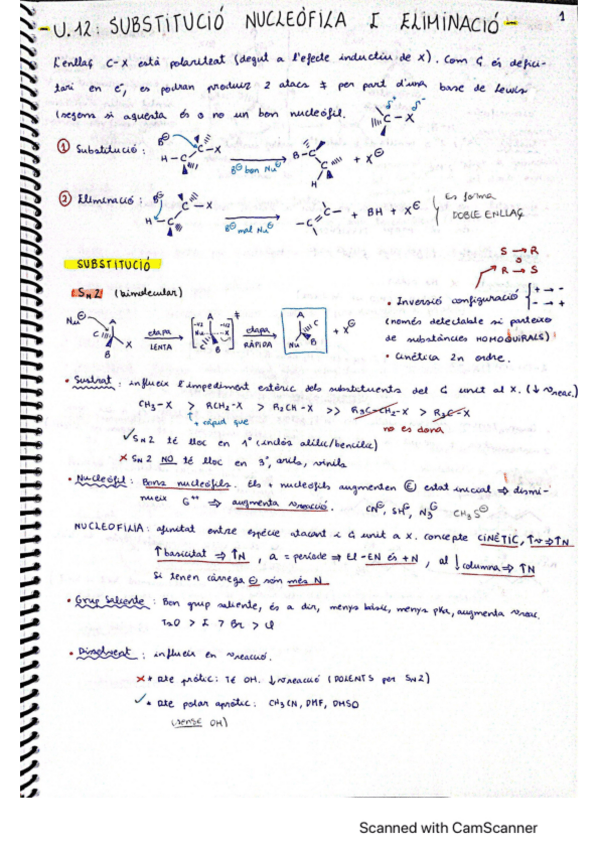 1
- U.12: SUBSTITUCIÓ NUCLEÒFILA I ELIMINACIÓ -
L'enllaç C-X està polaritzat (degut a l'efecte inductiu de X). Com C és defici-
tari en e⁻, es podran produir 2 atacs ≠ per part d'una base de Lewis
(segons si aquesta és o no un bon nucleòfil). δ⁺ δ⁻ C-X
① Substitució: B⊖ H-C C-X B⊖ bon Nu⊖ B-C C H + X⊖
② Eliminació: B⊖ H-C C-X B⊖ mal Nu⊖ -C=C- + BH + X⊖ Es forma
DOBLE ENLLAÇ
SUBSTITUCIÓ
S → R
o
R → S
SN2 (bimolecular)
• Inversió configuració + → -
- → +
(només detectable si parteixo
de substàncies HOMOQUIRALS)
• Cinètica 2n ordre.
Nu⊖ A C B X etapa LENTA [ A Nu C X B ]‡ etapa RÀPIDA A C Nu B + X⊖
• Sustrat: influeix l'impediment estèric dels substituents del C unit al X. (↓ vreac.)
CH₃-X > RCH₂-X > R₂CH-X >> R₃C-CH₂-X > R₃C-X
+ ràpid que
no es dona
✓ SN2 té lloc en 1º (inclós al·lílic/bencílic)
✗ SN2 NO té lloc en 3º, arils, vinils
• Nucleòfil: Bons nucleòfils. Els + nucleòfils augmenten E estat inicial ⇒ dismi-
nueix G‡ ⇒ augmenta vreacció. CN⊖, SH⊖, N₃⊖ CH₃S⊖
NUCLEOFILIA: afinitat entre espècie atacant i C unit a X. concepte CINÈTIC, ↑v⇒↑N
↑basicitat ⇒ ↑N, a = període ⇒ El -EN és +N, al ↓columna ⇒ ↑N
Si tenen càrrega ⊖ són més N
• Grup Saliente: Bon grup saliente, és a dir, menys bàsic, menys pKa, augmenta vreac.
TsO > I > Br > Cl
• Dissolvent: influeix en vreacció.
✗ • Dte pròtic: Té OH. ↓ vreacció (DOLENTS per SN2)
✓ • Dte polar apròtic: CH₃CN, DMF, DMSO
(sense OH)
Scanned with CamScanner